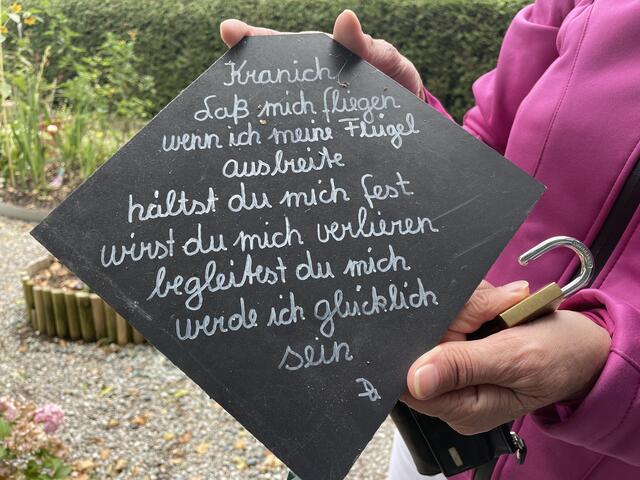 Kranich
daß mich fliegen
wenn ich meine Flügel
ausbreite
hältst du mich fest
wirst du mich verlieren
begleitest du mich
werde ich glücklich
sein